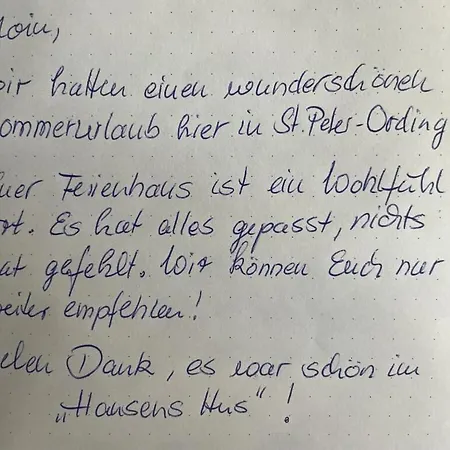 Moin,
wir hatten einen wunderschönen
Sommerurlaub hier in St. Peter-Ording
Euer Ferienhaus ist ein Wohlfühl
ort. Es hat alles gepasst, nichts
hat gefehlt. Wir können Euch nur
weiter empfehlen!
Vielen Dank, es war schön im
„Hansens Hus“!